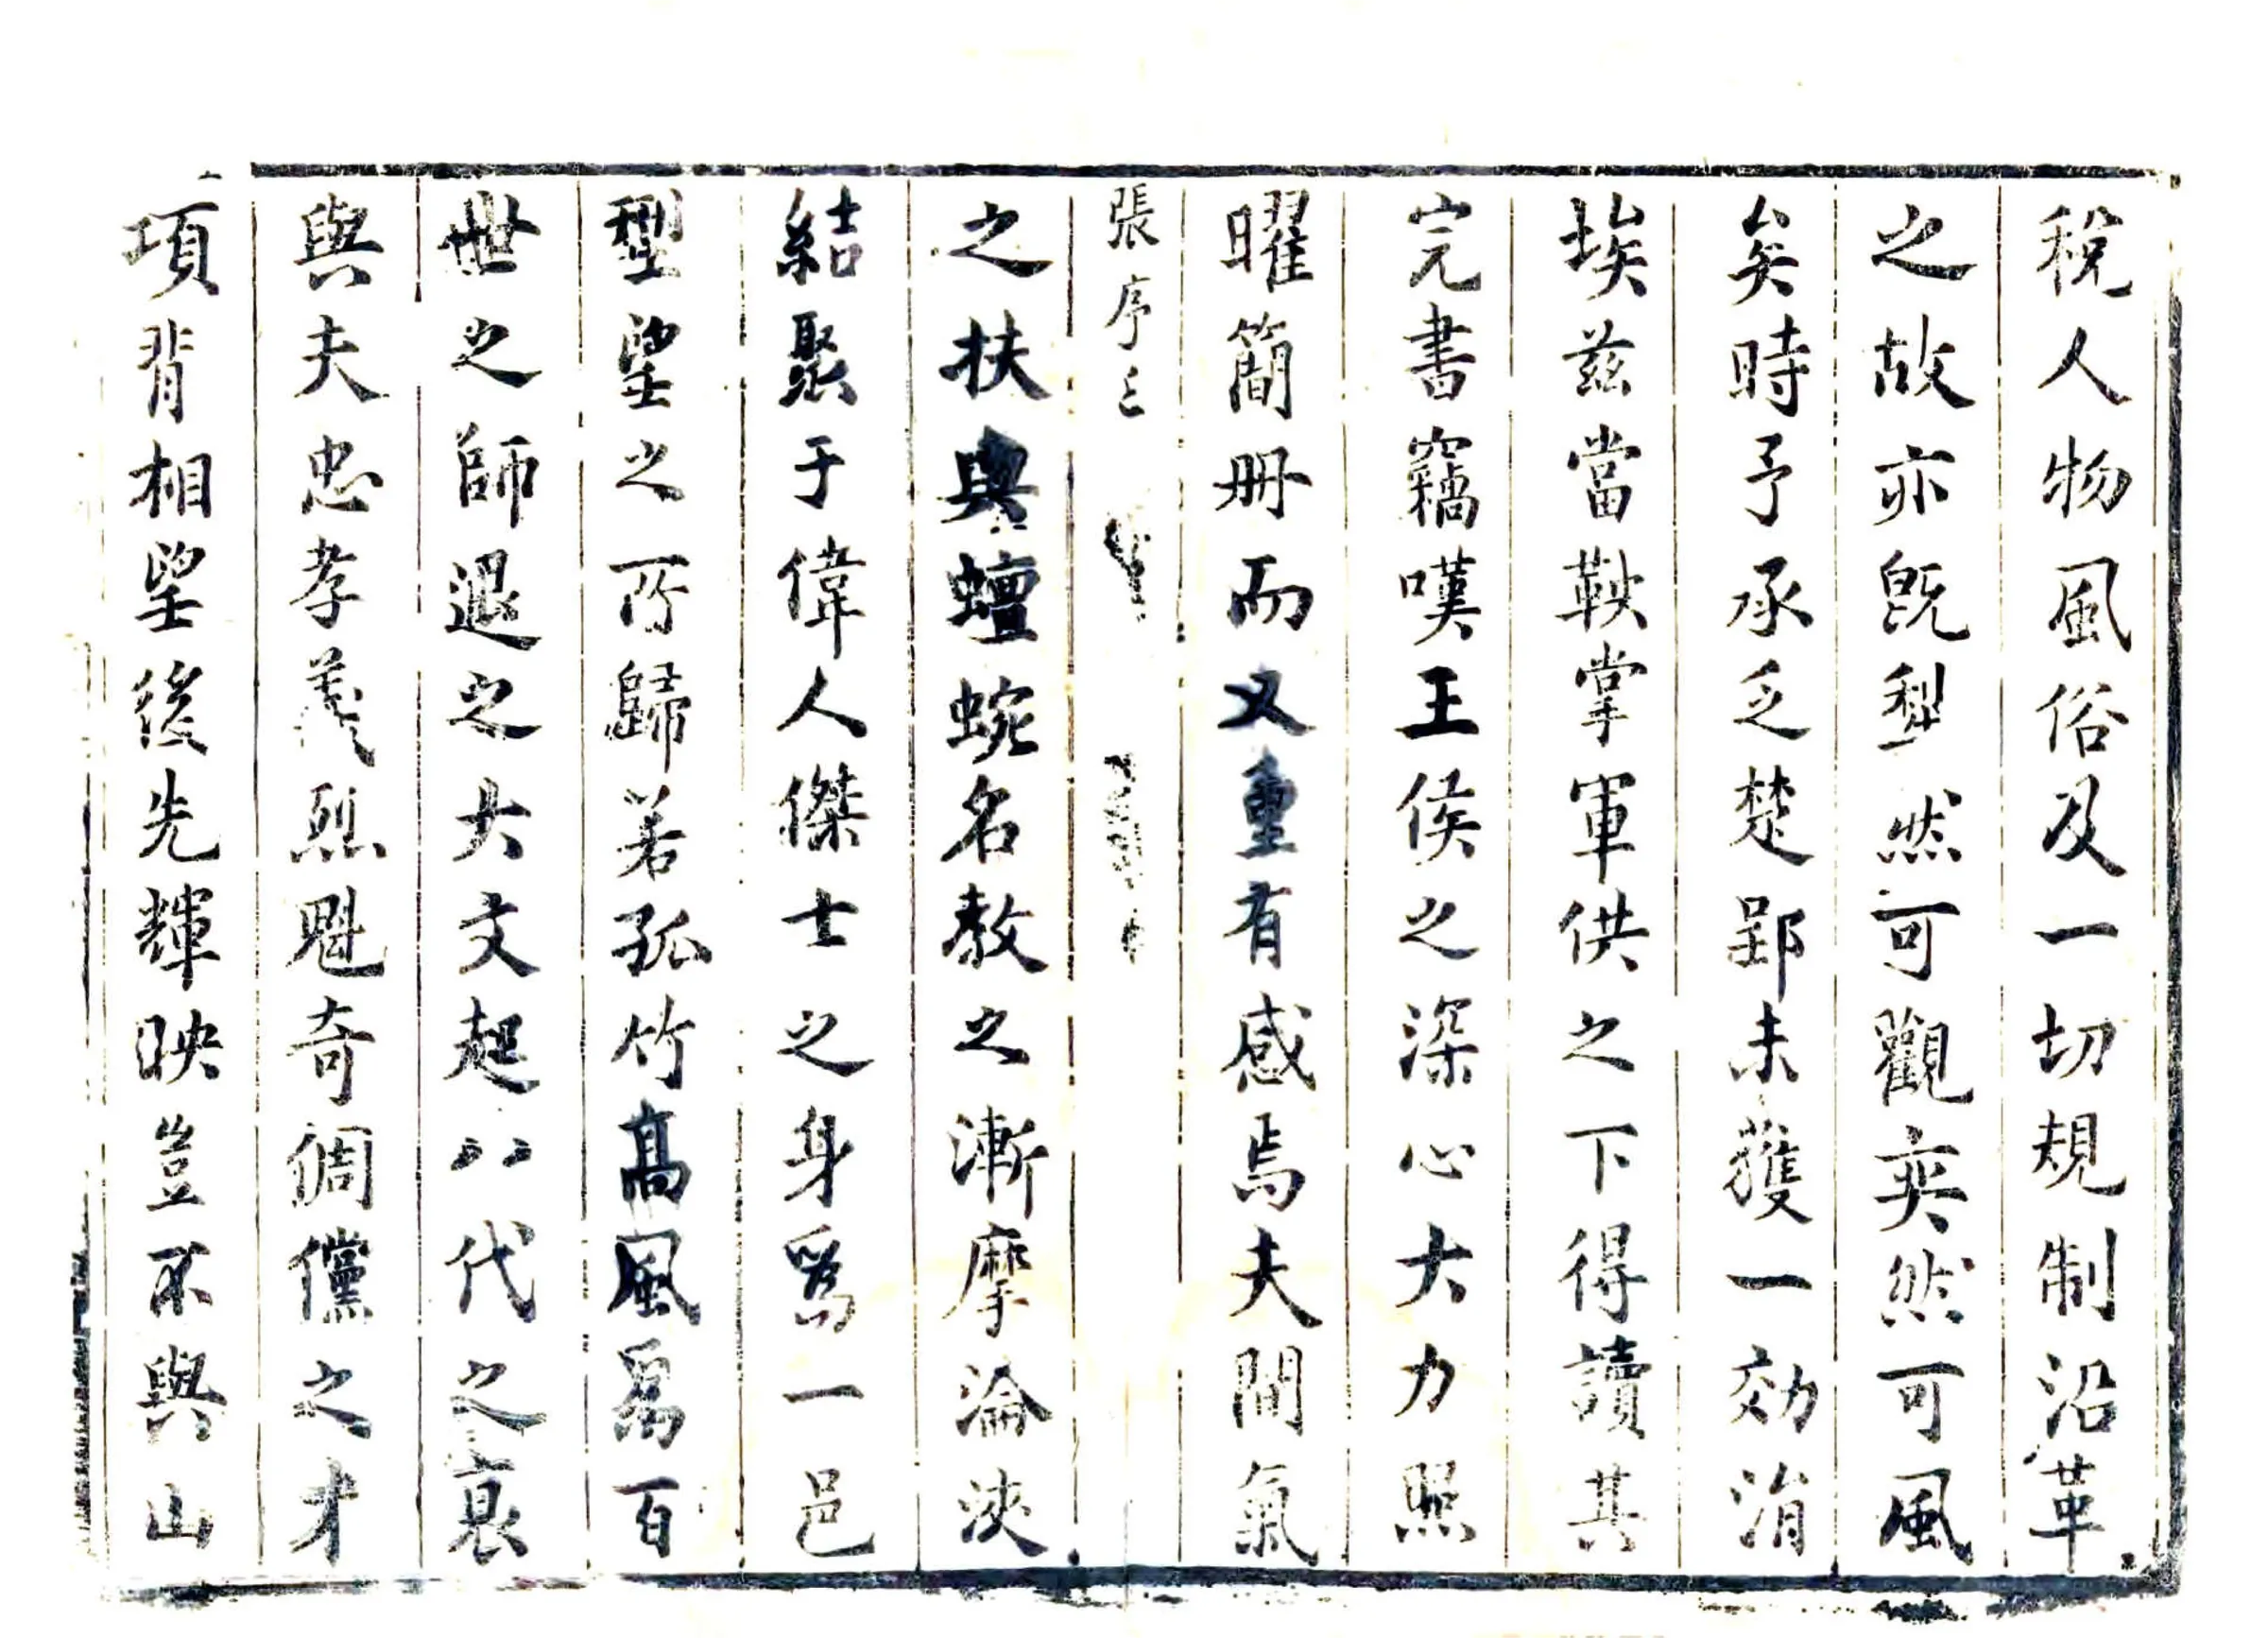 稅人物風俗及一切規制沿革
之故亦旣犁然可觀奕然可風
矣時予承乏楚郢未獲一効涓
埃兹當鞅掌軍供之下得讀其
完書竊嘆王侯之深心大力照
曜簡冊而又重有感焉夫間氣
張序三
之扶輿蟺蜿名教之漸摩淪浹
結聚于偉人傑士之身爲一邑
型望之所歸若孤竹高風爲百
世之師退之大文起八代之衰
與夫忠孝義烈魁奇倜儻之才
項背相望後先輝映豈不與山